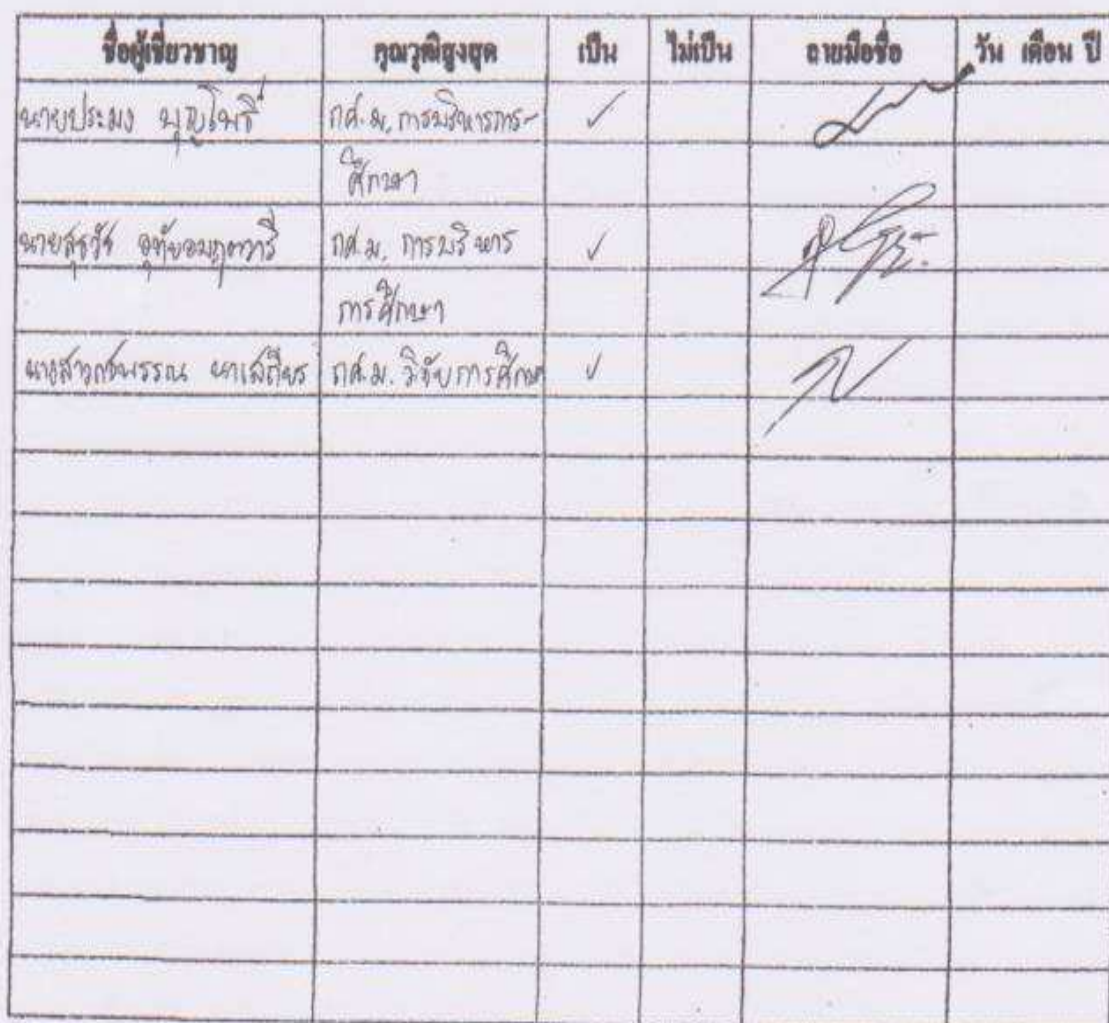 ชื่อผู้เชี่ยวชาญ คุณวุฒิสูงสุด เป็น ไม่เป็น ลายมือชื่อ วัน เดือน ปี
นายประมง บุญโพธิ์ กศ.ม. การบริหารการ- ✓
ศึกษา
นายสุรวัช กศ.ม. การบริหาร ✓
การศึกษา
นางสาว นาเสถียร กศ.ม. วิจัยการศึกษา ✓